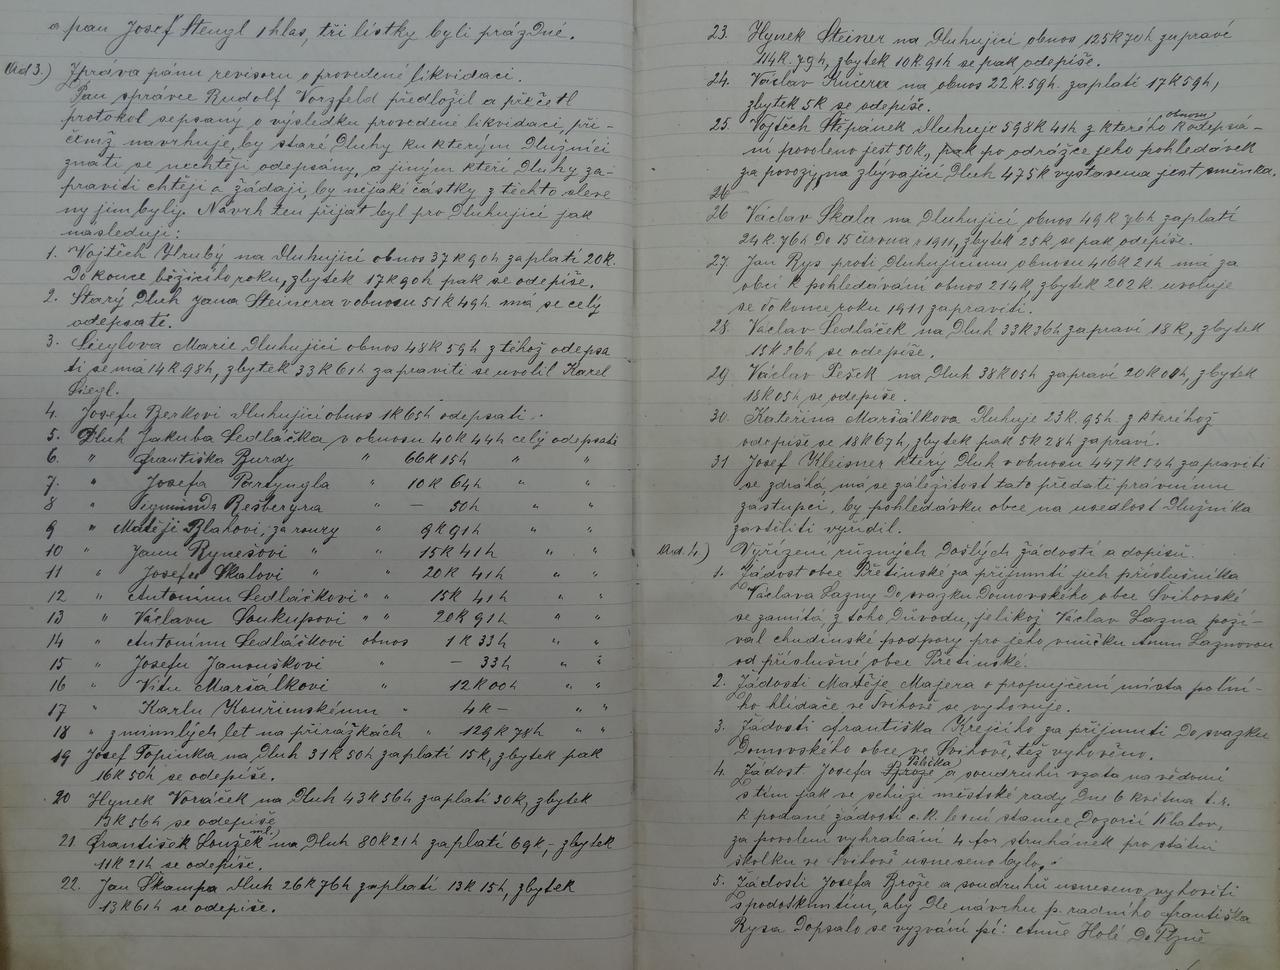 a pan Josef Stengl 1 hlas, tři lístky byli prázdné.
Ad 3.) Zpráva pánu revisoru o provedené likvidaci.
Pan správce Rudolf Vorzfeld předložil a přečetl
protokol sepsaný o výsledku provedené likvidaci, při-
čemž navrhuje, by staré dluhy ku kterým dlužníci
znáti se nechtějí odepsány, a jiným kteří dluhy za-
praviti chtějí a žádají, by nějaké částky z těchto sleve
ny jim byly. Návrh ten přijat byl pro dluhující jak
následuje:
1. Vojtěch Hrubý na dluhující obnos 37 K 90 h zaplatí 20 K.
do konce běžícího roku, zbytek 17 K 90 h pak se odepíše.
2. Starý dluh Jana Steinera v obnosu 51 K 49 h má se celý
odepsati.
3. Sieglova Marie dluhující obnos 48 K 59 h z těhož odepsa
ti se má 14 K 98 h, zbytek 33 K 61 h zapraviti se uvolil Karel
Siegl.
4. Josefu Berkovi dluhující obnos 1 K 65 h odepsati.
5. Dluh Jakuba Sedláčka v obnosu 40 K 44 h celý odepsati
6. " Františka Burdy " 66 K 15 h " "
7. " Josefa Portyngla " 10 K 64 h " "
8 " Sigmunda Rešberyra " — 50 h " "
9 " Matěji Blahovi, za roury " 9 K 91 h " "
10 " Janu Rynešovi " " 15 K 41 h " "
11 " Josefu Skalovi " " 20 K 41 h " "
12 " Antonínu Sedláčkovi " " 15 K 41 h " "
13 " Václavu Soukupovi " " 20 K 91 h " "
14 " Antonínu Sedláčkovi obnos 1 K 33 h " "
15 " Josefu Janouškovi " — 33 h " "
16 " Vítu Maršálkovi " 12 K 00 h " "
17 " Karlu Kouřimskému " 4 K — " "
18 " z minulých let na přirážkách " 129 K 78 h " "
19 Josef Topinka na dluh 31 K 50 h zaplatí 15 K, zbytek pak
16 K 50 h se odepíše.
20 Hynek Voráček na dluh 43 K 56 h zaplatí 30 K, zbytek
13 K 56 h se odepíše
21. František Loužek ml. na dluh 80 K 21 h zaplatí 69 K,- zbytek
11 K 21 h se odepíše.
22. Jan Škampa dluh 26 K 76 h zaplatí 13 K 15 h, zbytek
13 K 61 h se odepíše.
23. Hynek Steiner na dluhující obnos 125 K 70 h zapraví
114 K. 79 h, zbytek 10 K 91 h se pak odepíše.
24. Václav Kučera na obnos 22 K. 59 h. zaplatí 17 K 59 h,
zbytek 5 K se odepíše.
25. Vojtěch Štěpánek dluhuje 598 K 41 h z kterého obnosu k odepsá-
ní povoleno jest 50 K, pak po odrážce jeho pohledávek
za povozy, na zbývající dluh 475 K vystavena jest směnka.
26
26 Václav Skala na dluhující obnos 49 K 76 h zaplatí
24 K. 76 h do 15 června r 1911, zbytek 25 K, se pak odepíše.
27. Jan Rys proti dluhujícímu obnosu 416 K 21 h má za
obcí k pohledávání obnos 214 K, zbytek 202 K. uvoluje
se do konce roku 1911 zapraviti.
28. Václav Sedláček na dluh 33 K 36 h zapraví 18 K, zbytek
15 K 36 h se odepíše.
29. Václav Pešek na dluh 38 K 05 h zapraví 20 K 00 h, zbytek
18 K 05 h se odepíše.
30. Kateřina Maršálkova dluhuje 23 K. 95 h. z kteréhož
odepíše se 18 K 67 h, zbytek pak 5 K 28 h zapraví.
31 Josef Kleisner který dluh v obnosu 447 K 54 h zapraviti
se zdráhá, má se záležitost tato předati právnímu
zástupci, by pohledávku obce na usedlost dlužníka
zastititi vyřídil.
Ad. 4.) Vyřízení různých došlých žádostí a dopisů.
1. Žádost obce Přetinské za přijmutí jich příslušníka
Václava Lazny do svazku domovského obce Svihovské
se zamítá z toho důvodu, jelikož Václav Lazna poží-
val chudinské podpory pro jeho vnučku Annu Laznovou
od příslušné obce Přetinské.
2. Žádosti Matěje Majera o propujčení místa polní-
ho hlídače ve Svihově se vyhovuje.
3. Žádosti Františka Krejčího za přijmutí do svazku
domovského obce ve Svihově, též vyhověno.
4. Žádost Josefa Brože a soudruhu vzata na vědomí
s tím jak ve schůzi městské rady dne 6 května t.r.
k podané žádosti c.k. lesní stanice dozorčí Klatov,
za povolení vyhrabání 4 for struhánek pro státní
školku ve Svihově usneseno bylo.
5. Žádosti Josefa Brože a soudruhů usneseno, vyhověti
s podotknutím, aby dle návrhu p. radního Františka
Rysa dopsalo se vyzvání pí: Anně Holé do Plzně